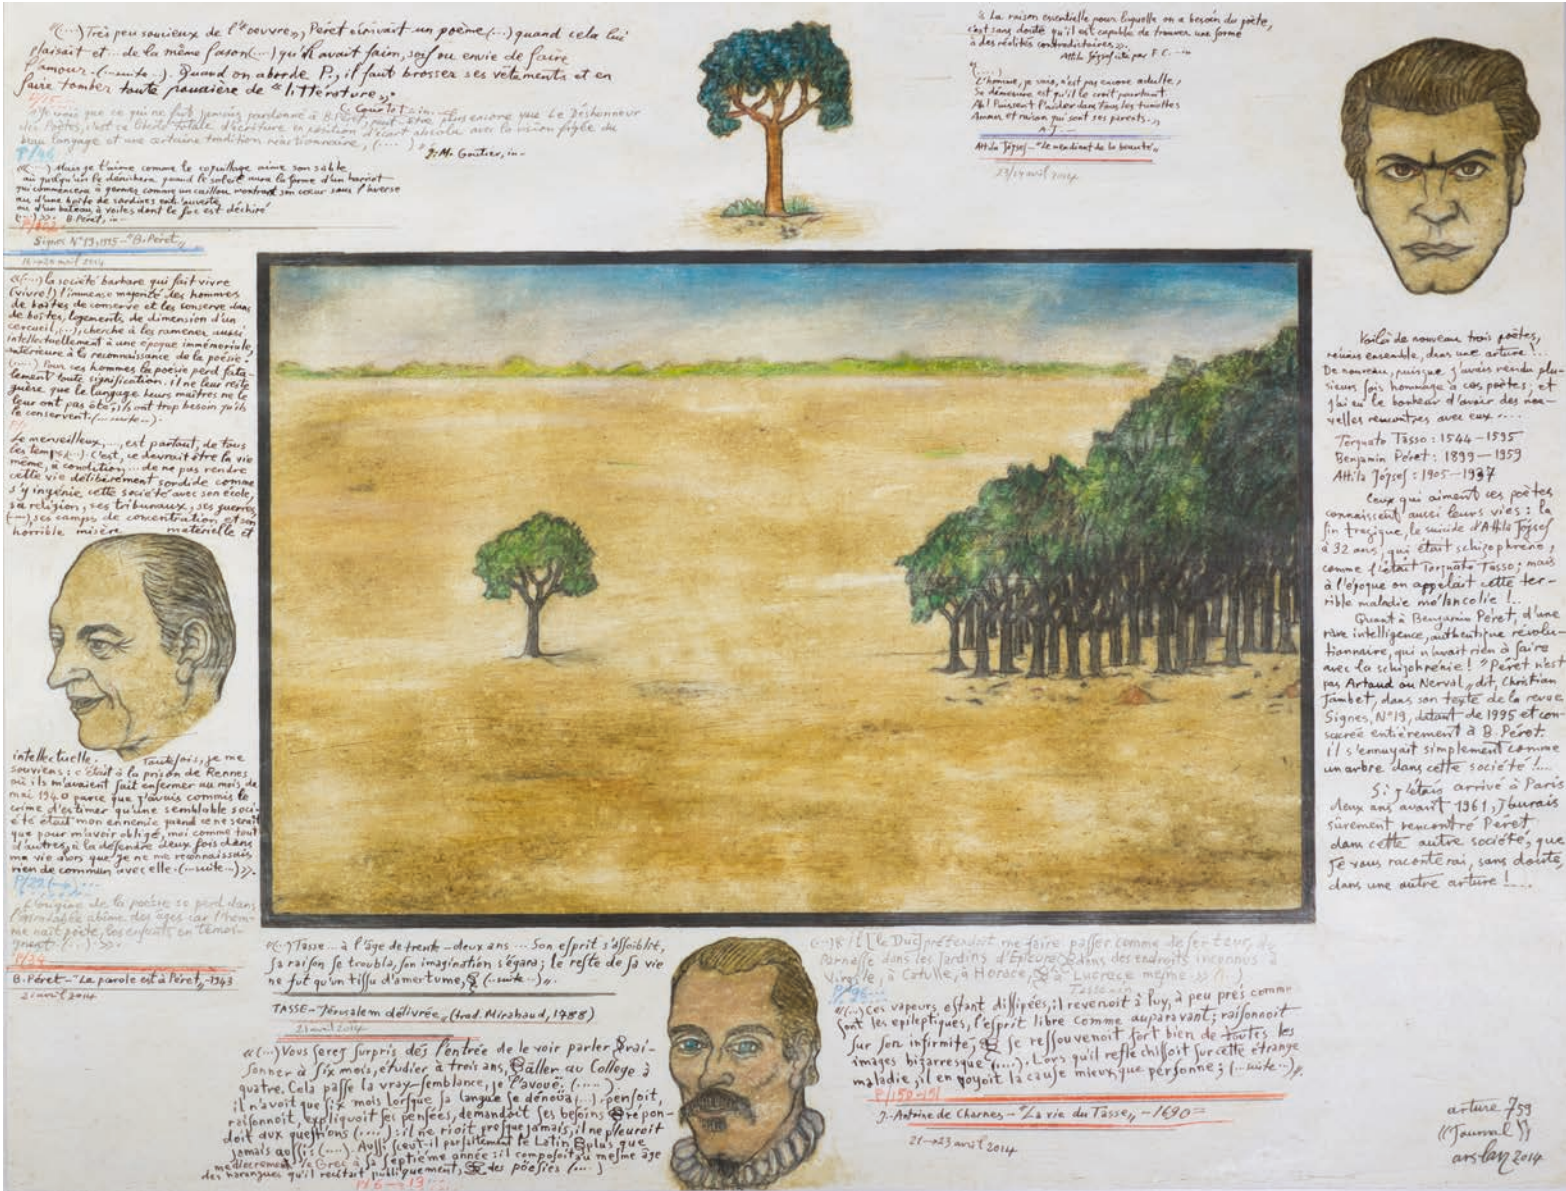 «(...) Très peu soucieux de l'"oeuvre", Péret écrivait un poème (...) quand cela lui
plaisait et... de la même façon (...) qu'il avait faim, soif ou envie de faire
l'amour. (...suite...). Quand on aborde P., il faut brosser ses vêtements et en
faire tomber toute poussière de "littérature"».
C. Courtot in-
que ce qui ne fut jamais pardonné à B. Péret, peut-être plus encore que Le Déshonneur
des Poètes, c'est sa liberté totale d'écriture en position d'écart absolu avec la vision figée du
beau langage et une certaine tradition réactionnaire, (...)».
J.M. Goutier, in-
P/44
«(...) Mais je t'aime comme le coquillage aime son sable
où quelqu'un le dénichera quand le soleil aura la forme d'un haricot
qui commencera à germer comme un caillou montrant son coeur sous l'averse
ou d'une boîte de sardines entr'ouverte
ou d'un bateau à voiles dont le foc est déchiré
(...)». B. Péret, in-
P/102
Signes N°19, 1995-"B. Péret"
avril 2014
«(...) la société barbare qui fait vivre
(vivre!) l'immense majorité des hommes
de boîtes de conserve et les conserve dans
de boîtes, logements de dimension d'un
cercueil, (...), cherche à les ramener aussi
intellectuellement à une époque immémoriale,
antérieure à la reconnaissance de la poésie.
(...) Pour ces hommes la poésie perd fata-
lement toute signification. il ne leur reste
guère que le langage. Leurs maîtres ne le
leur ont pas ôté, ils ont trop besoin qu'ils
le conservent. (...suite...).
Le merveilleux, ..., est partout, de tous
les temps, (...). C'est, ce devrait être la vie
même, à condition... de ne pas rendre
cette vie délibérément sordide comme
s'y ingénie cette société avec son école,
sa religion, ses tribunaux, ses guerres,
(...), ses camps de concentration et son
horrible misère matérielle et
intellectuelle. Toutefois, je me
souviens: c'était à la prison de Rennes
où ils m'avaient fait enfermer au mois de
mai 1940 parce que j'avais commis le
crime d'estimer qu'une semblable soci-
été était mon ennemie quand ce ne serait
que pour m'avoir obligé, moi comme tout
d'autres, à la défendre deux fois dans
ma vie alors que je ne me reconnaissais
rien de commun avec elle. (...suite...)».
P/29
L'origine de la poésie se perd dans
l'insondable abîme des âges car l'hom-
me naît poète, les enfants en témoi-
gnent. (...)».
P/34
B. Péret-"La parole est à Péret"-1943
21 avril 2014
« La raison essentielle pour laquelle on a besoin du poète,
c'est sans doute qu'il est capable de trouver une forme
à des réalités contradictoires».
Attila József cité par F.C. - in
L'homme, je vois, n'est pas encore adulte,
Sa démesure est qu'il le croit pourtant
Ah! Puissent l'aider dans tous les tumultes
Amour et raison qui sont ses parents.»
A.J.
Attila József-"Le mendiant de la beauté"
23/24 avril 2014
Voilà de nouveau trois poètes,
réunis ensemble, dans une arture!...
De nouveau, puisque j'avais rendu plu-
sieurs fois hommage à ces poètes, et
j'ai eu le bonheur d'avoir des nou-
velles rencontres avec eux....
Torquato Tasso: 1544-1595
Benjamin Péret: 1899-1959
Attila József: 1905-1937
Ceux qui aiment ces poètes
connaissent aussi leurs vies: la
fin tragique, le suicide d'Attila József
à 32 ans, qui était schizophrène,
comme l'était Torquato Tasso; mais
à l'époque on appelait cette ter-
rible maladie mélancolie!..
Quant à Benjamin Péret, d'une
rare intelligence, authentique révolu-
tionnaire, qui n'avait rien à faire
avec la schizophrénie! "Péret n'est
pas Artaud ou Nerval", dit, Christian
Jambet, dans son texte de la revue
Signes, N°19, datant de 1995 et con-
sacrée entièrement à B. Péret.
il s'ennuyait simplement comme
un arbre dans cette société!...
Si j'étais arrivé à Paris
deux ans avant 1961, j'aurais
sûrement rencontré Péret
dans cette autre société, que
je vous raconterai, sans doute,
dans une autre arture!...
«(...) Tasse... à l'âge de trente-deux ans... Son esprit s'affoiblit,
sa raison se troubla, son imagination s'égara; le reste de sa vie
ne fut qu'un tissu d'amertume, & (...suite...)».
TASSE-"Jérusalem délivrée" (trad. Mirabaud, 1788)
21 avril 2014
«(...) Vous serez surpris dés l'entrée de le voir parler & rai-
sonner à six mois, étudier à trois ans, & aller au College à
quatre. Cela passe la vray-semblance, je l'avouë. (.....).
il n'avoit que six mois lorsque sa langue se dénoüa (...). pensoit,
raisonnoit, expliquoit ses pensées, demandoit ses besoins & répon-
doit aux questions (....): il ne rioit presque jamais, il ne pleuroit
jamais aussi (....). Aussi sceut-il parfaitement le Latin & plus que
mediocrement le Grec à sa septiéme année: il composoit au mesme âge
des harangues qu'il recitait publiquement, & des poësies (...)
P/6-13
[le Duc] prétendoit me faire passer comme deserteur, de
Parnasse dans les Jardins d'Epicure, & dans des endroits inconnus à
Virgile, à Catulle, à Horace, & à Lucrece mesme.» (...)
«(...) Ces vapeurs estant dissipées, il revenoit à luy, à peu prés comme
font les epileptiques, l'esprit libre comme auparavant; raisonnoit
sur son infirmité, & se ressouvenoit fort bien de toutes les
images bizarresque (....). Lors qu'il refléchissoit sur cette étrange
maladie, il en voyoit la cause mieux que personne; (...suite...)».
P/150-151
J. Antoine de Charnes-"La vie du Tasse"-1690
21→23 avril 2014
arture 759
((Journal))
arslan 2014